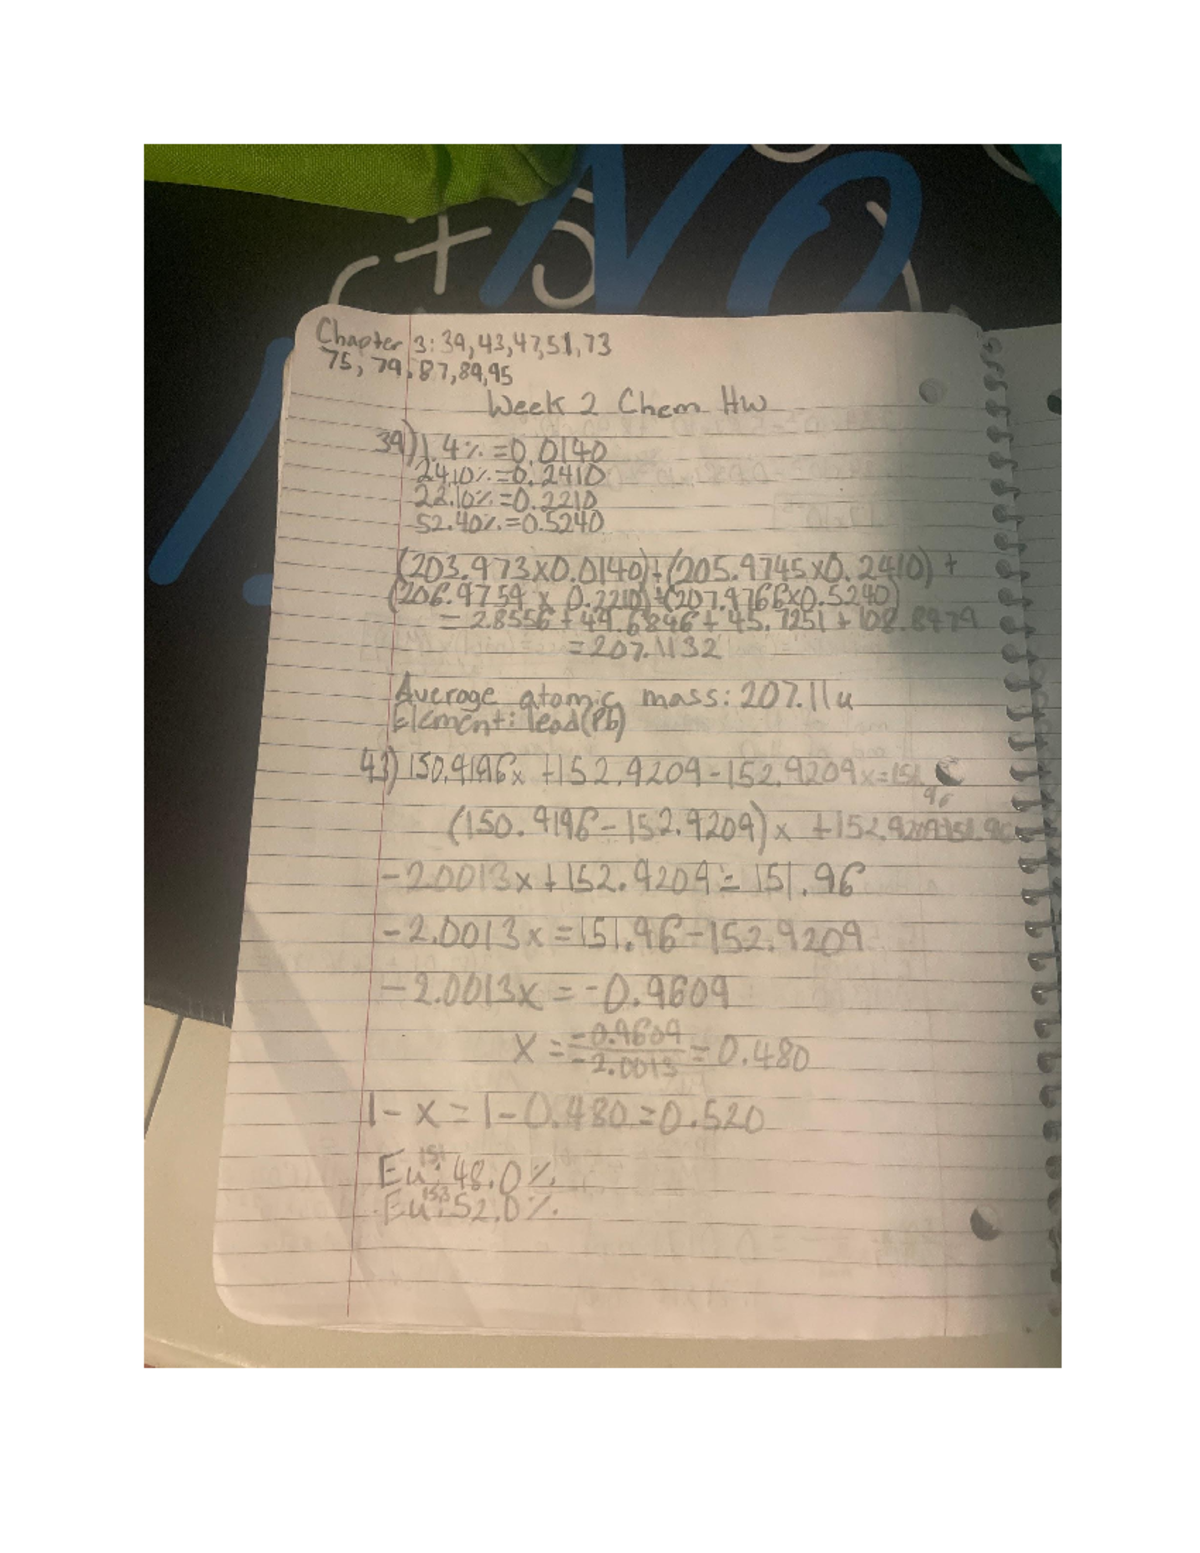 +5 NO
Chapter 3: 39, 43, 47, 51, 73
75, 79, 87, 89, 95
Week 2 Chem HW
39) 1.4% = 0.0140
24.10% = 0.2410
22.10% = 0.2210
52.40% = 0.5240
(203.973 x 0.0140) + (205.9745 x 0.2410) +
(206.9759 x 0.2210) + (207.9766 x 0.5240)
= 2.8556 + 49.6846 + 45.7251 + 108.8479
= 207.1132
Average atomic mass: 207.11u
Element: lead (Pb)
43) 150.9196x + 152.9209 - 152.9209x = 151.96
(150.9196 - 152.9209)x + 152.9209 = 151.96
-2.0013x + 152.9209 = 151.96
-2.0013x = 151.96 - 152.9209
-2.0013x = -0.9609
x = -0.9609 / -2.0013 = 0.480
1 - x = 1 - 0.480 = 0.520
Eu¹⁵¹: 48.0%
Eu¹⁵³: 52.0%